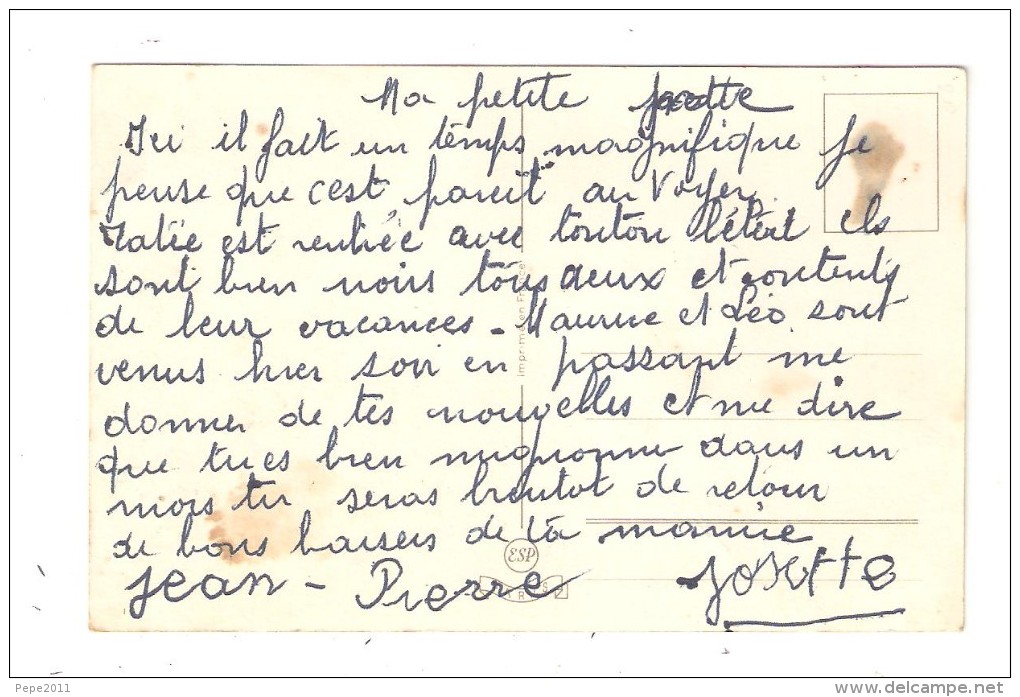 Ma petite
Ici il fait un temps magnifique je
pense que c'est pareil au Voyer
est rentrée avec tonton Ils
sont bien noirs tous deux et contents
de leur vacances - Maurice et Léo sont
venus hier soir en passant me
donner de tes nouvelles et me dire
que tu es bien mignonne dans un
mois tu seras bientot de retour
de bons baisers de ta mamie
Jean - Pierre Josette
Imprimé en France
ESP
Pepe2011
www.delcampe.net